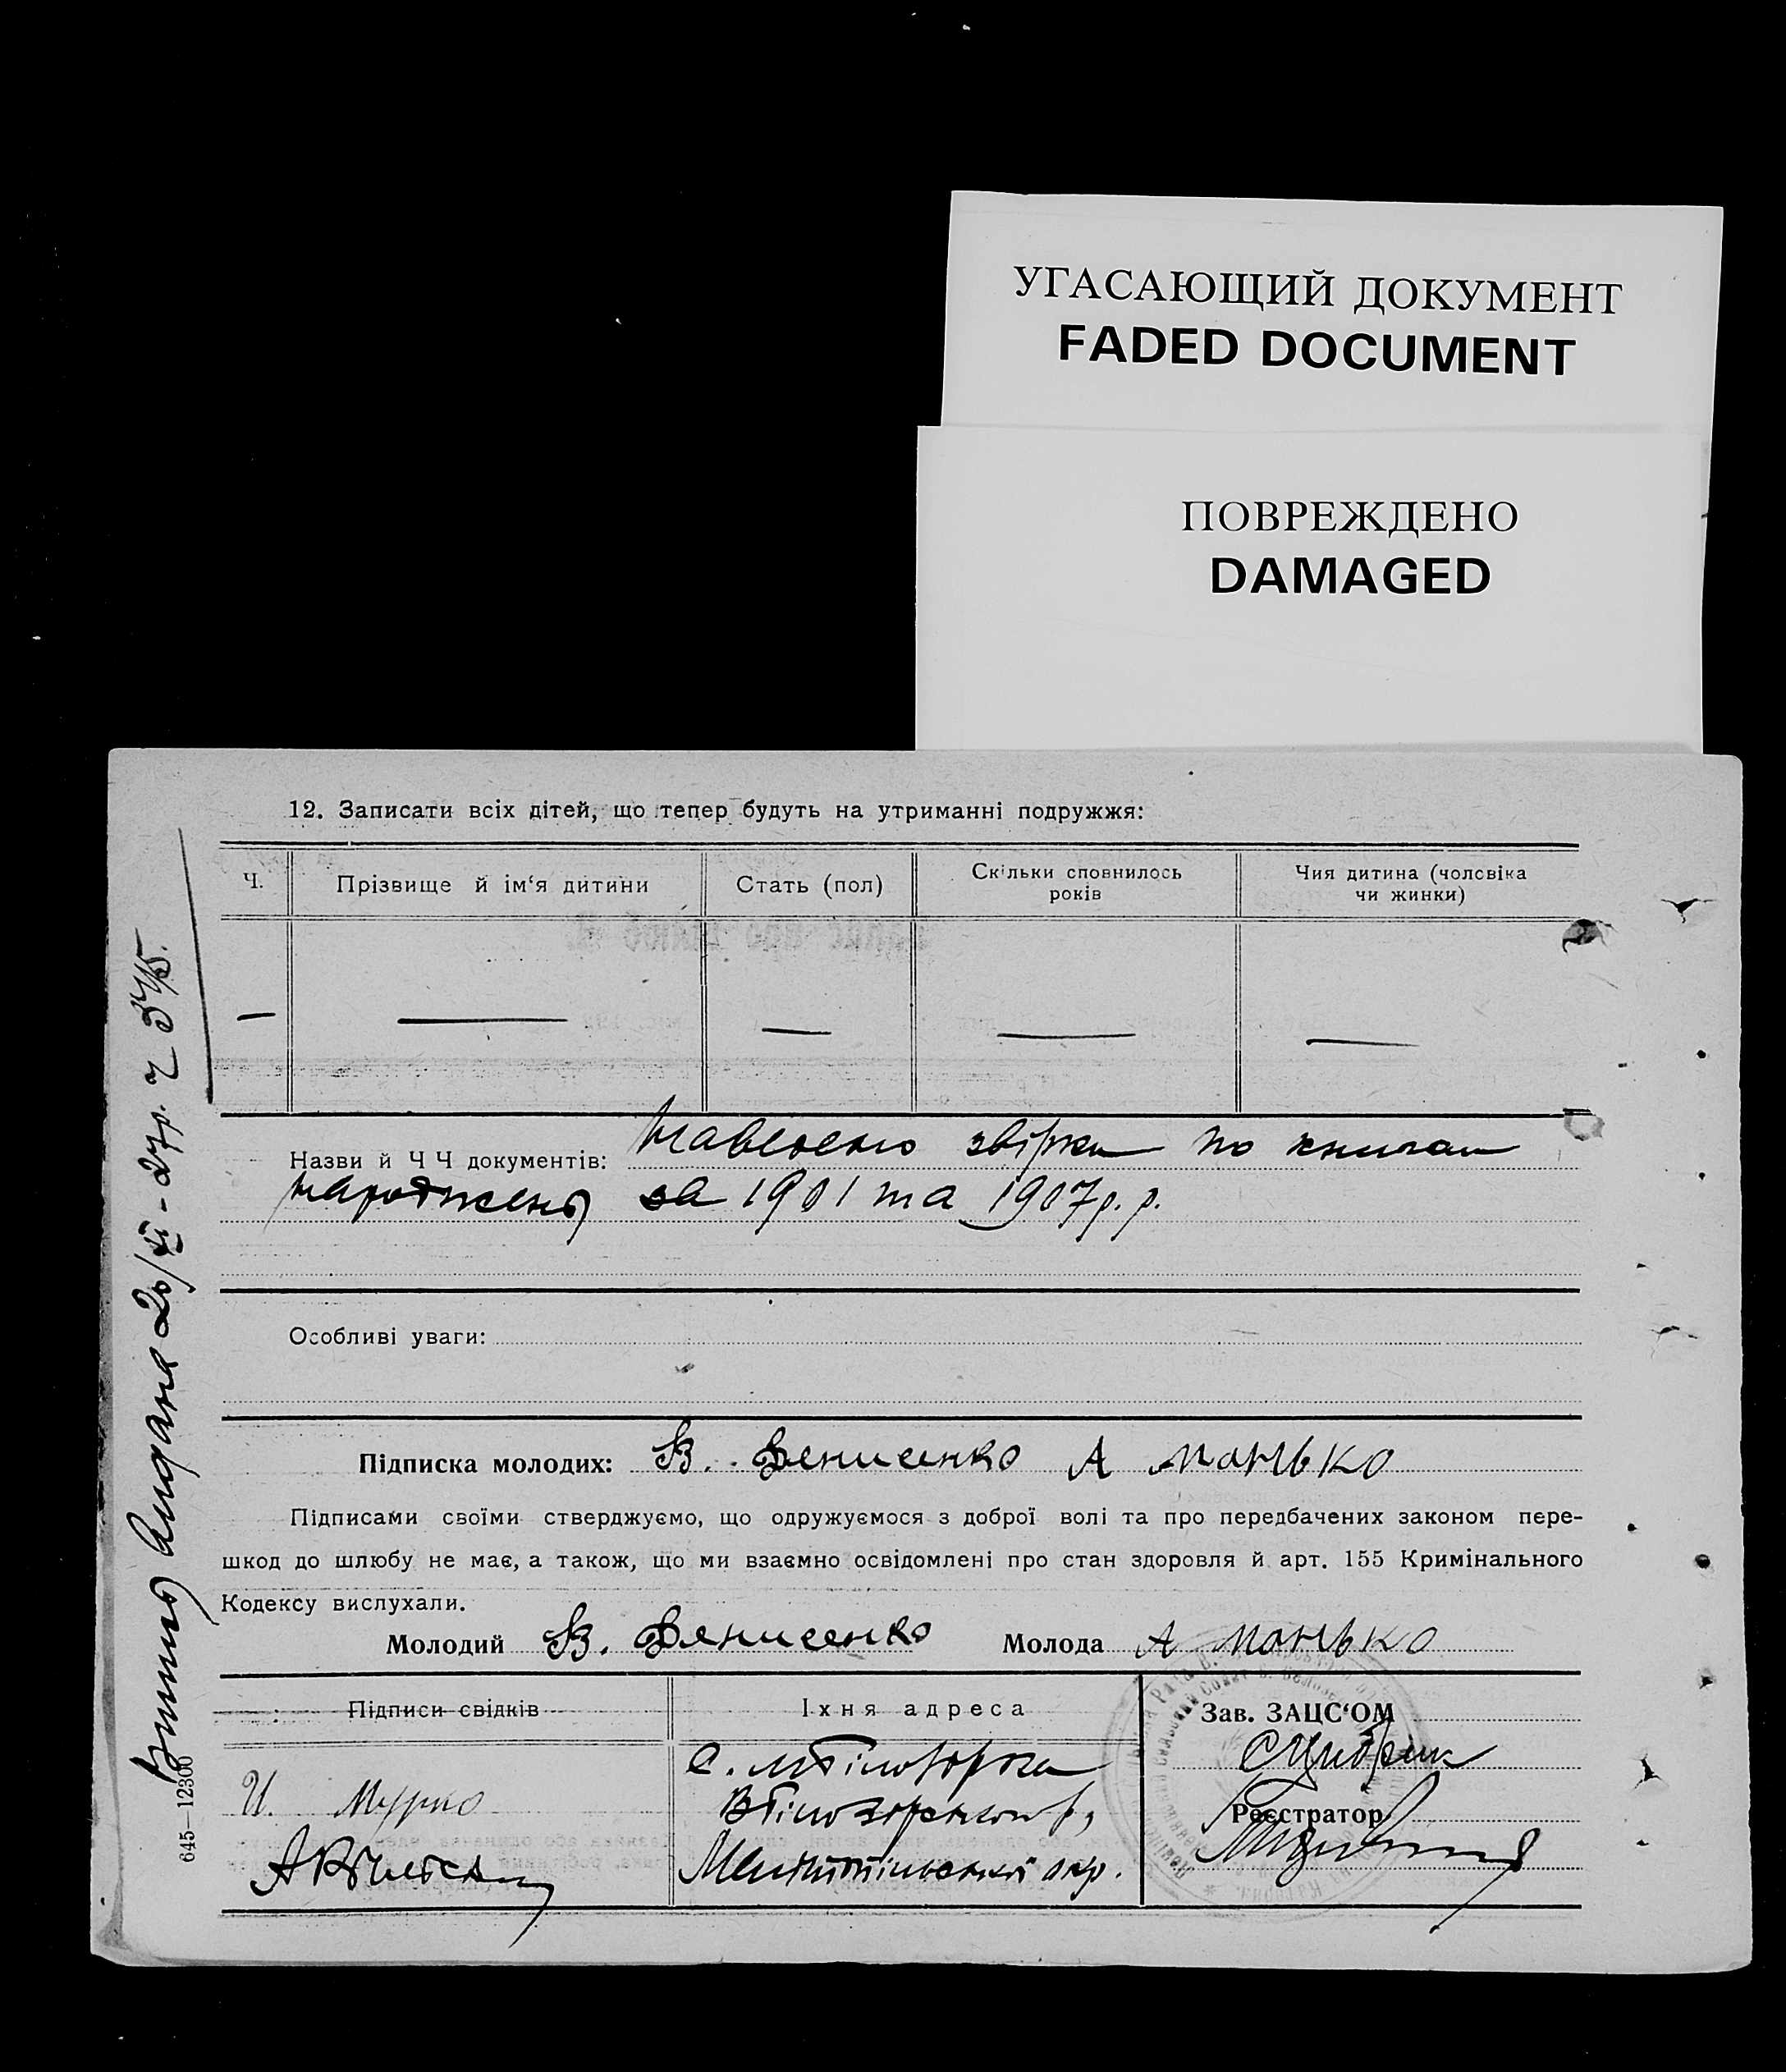 УГАСАЮЩИЙ ДОКУМЕНТ
FADED DOCUMENT
ПОВРЕЖДЕНО
DAMAGED
12. Записати всіх дітей, що тепер будуть на утриманні подружжя:
Ч.
Прізвище й ім‘я дитини
Стать (пол)
Скільки сповнилось
років
Чия дитина (чоловіка
чи жинки)
— — — — —
Назви й Ч Ч документів: Наведено звірки по книгам
народжень за 1901 та 1907 р. р.
Особливі уваги:
Підписка молодих: В. Денисенко А Манько
Підписами своїми стверджуємо, що одружуємося з доброї волі та про передбачених законом пере-
шкод до шлюбу не має, а також, що ми взаємно освідомлені про стан здоровля й арт. 155 Кримінального
Кодексу вислухали.
Молодий В. Денисенко Молода А Манько
Підписи свідків
Їхня адреса
Зав. ЗАЦС‘ОМ
с. М Білозорка
В Білозорського р,
И. Мурко
Реєстратор
Мелітопільської окр.
Витяг видана 20/XI - 27р. ч
645—12300